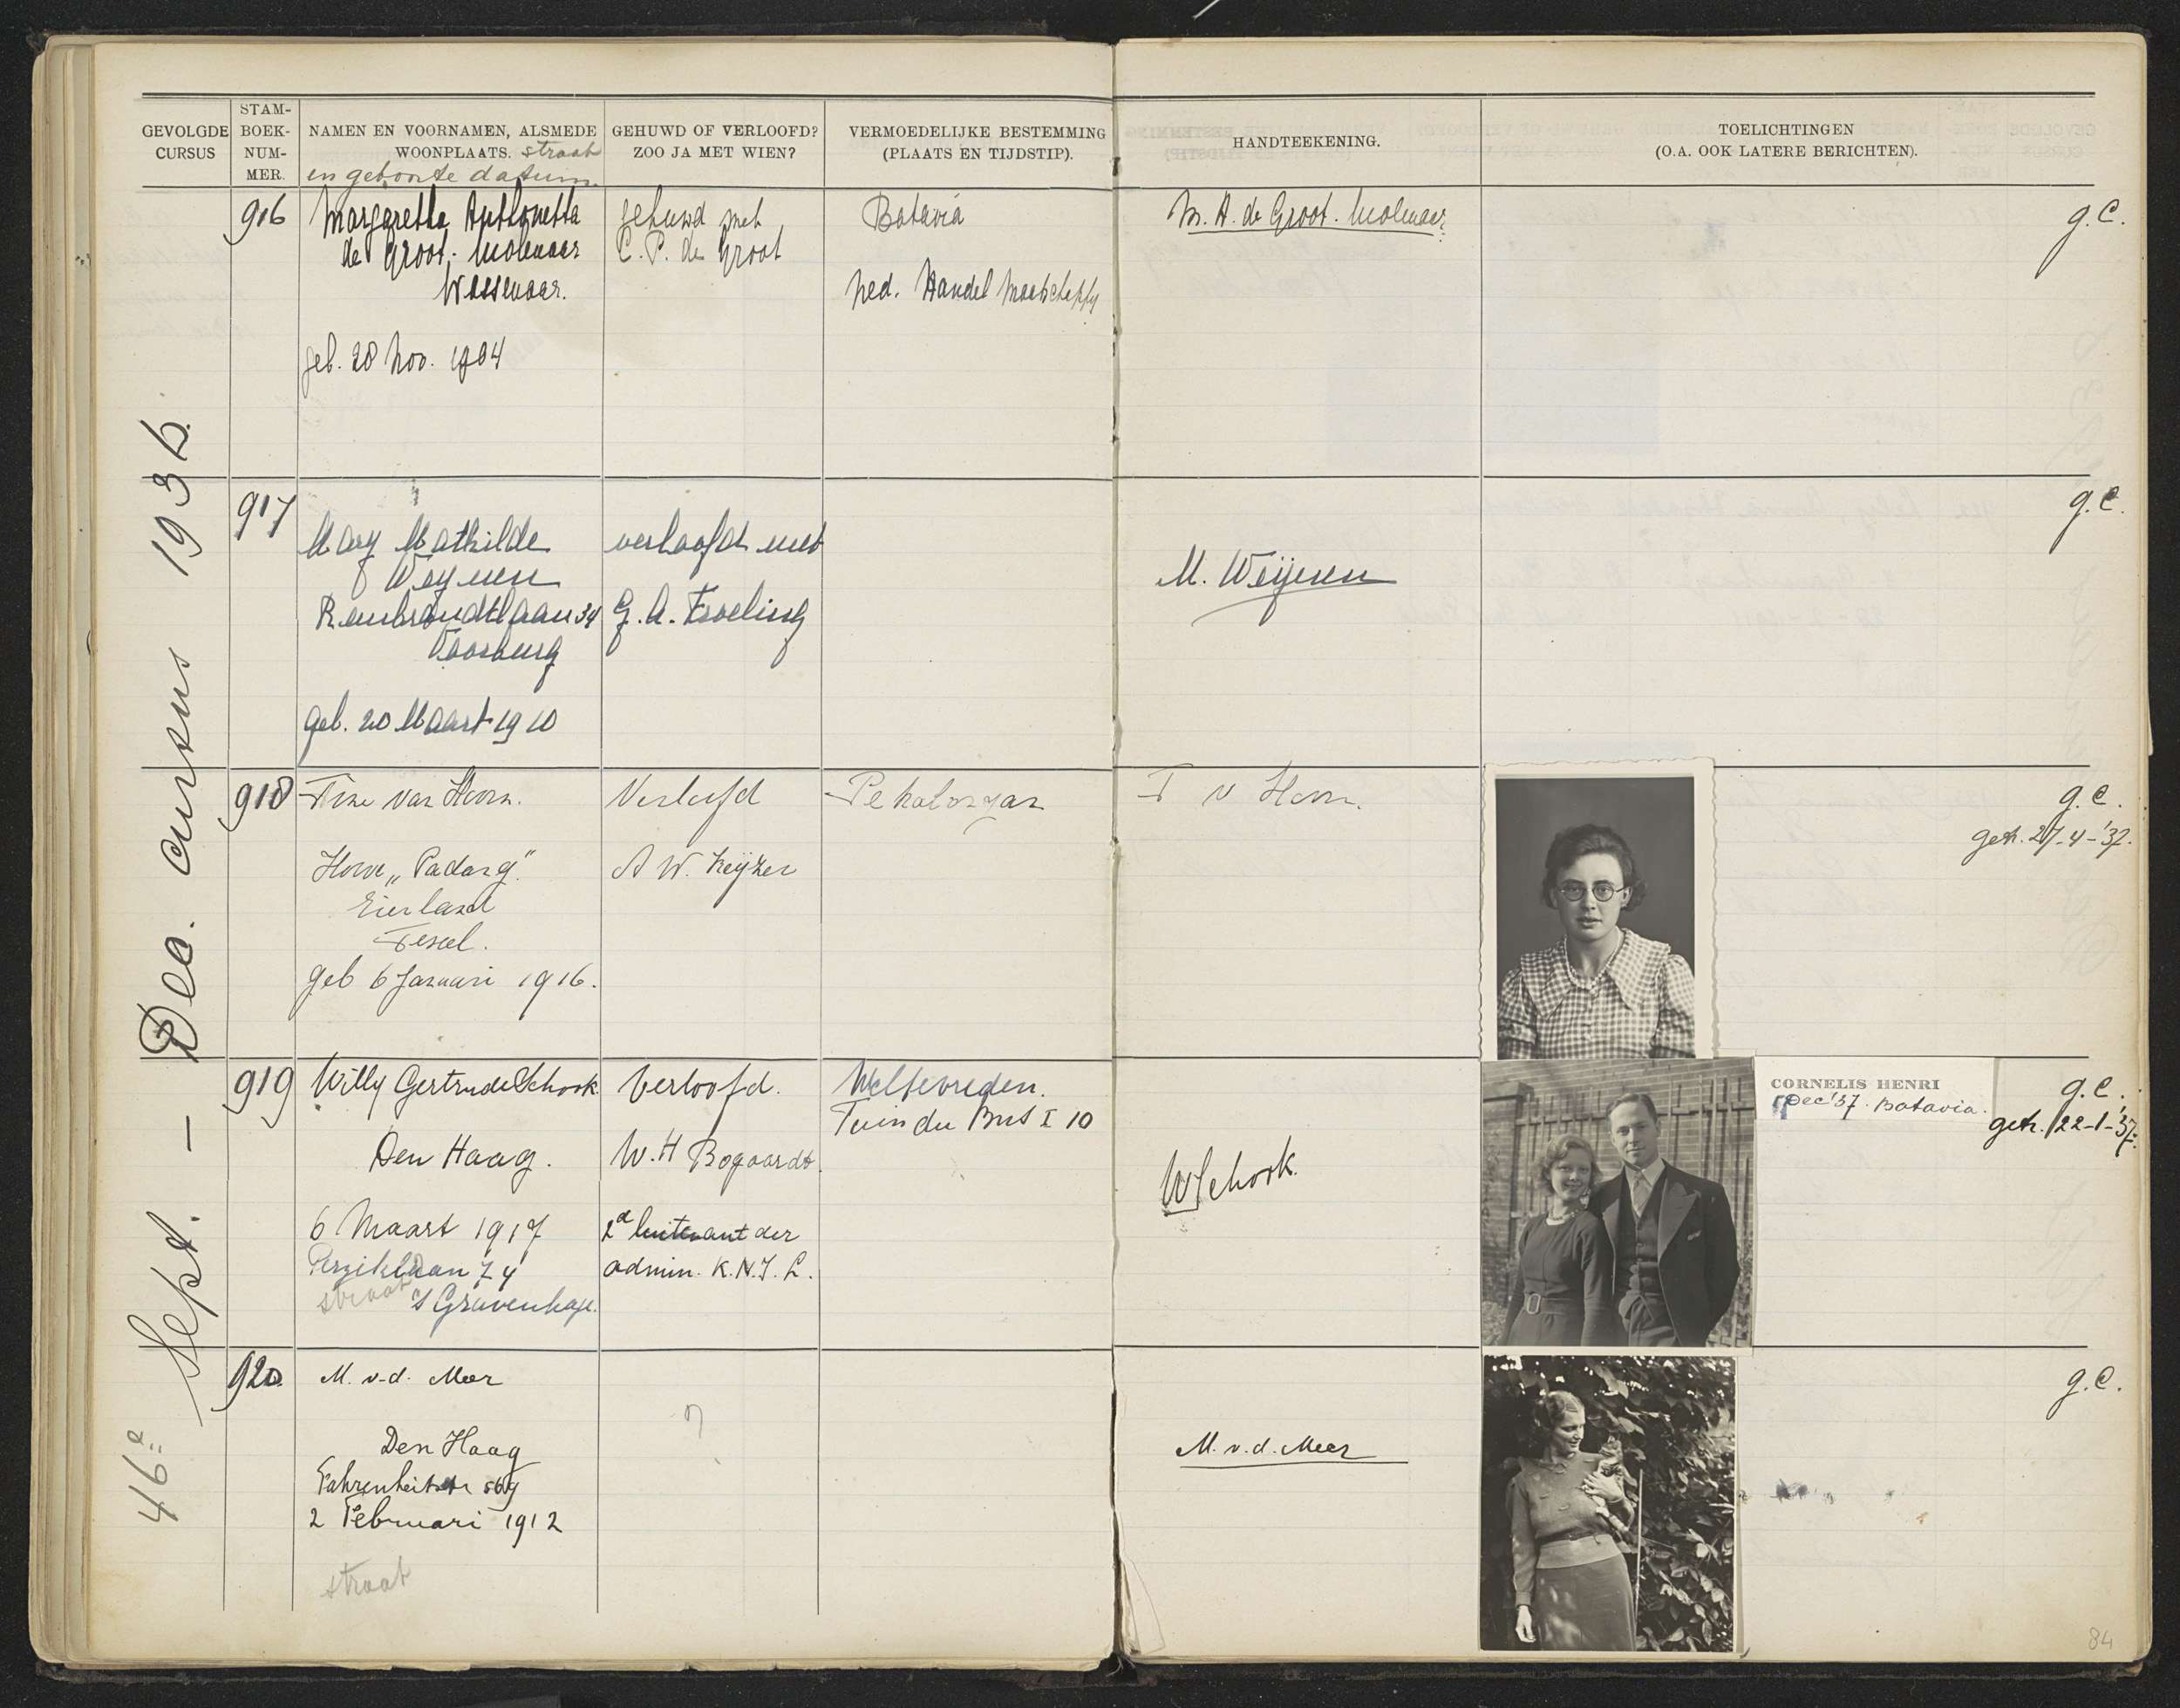 GEVOLGDE
CURSUS
STAM-
BOEK-
NUM-
MER.
NAMEN EN VOORNAMEN, ALSMEDE
WOONPLAATS. straat
en geboorte datum.
GEHUWD OF VERLOOFD?
ZOO JA MET WIEN?
VERMOEDELIJKE BESTEMMING
(PLAATS EN TIJDSTIP).
HANDTEEKENING.
TOELICHTINGEN
(O.A. OOK LATERE BERICHTEN).
46e Sept. – Dec. cursus 1936.
916
Margaretha Anthonetta
de Groot-Molenaar
Wassenaar.
geb. 28 Nov. 1904
gehuwd met
C. P. de Groot
Batavia
Ned. Handel Maatschappy
M. A. de Groot-Molenaar
g.C.
917
Mary Mathilde
Weynen
Rembrandtlaan 34
Voorburg
geb. 20 Maart 1910
verloofd met
G. A.
M. Weijnen
g.C.
918
Tine van Hoorn.
Hoeve „Padang"
Eierland
Texel.
geb 6 Januari 1916.
Verloofd
A W. Keijzer
Pekalongan
T v Hoorn.
g.C.
getr. 27-4-'37.
919
Willy Gertrude Schook
Den Haag.
6 Maart 1917
Perziklaan 74
straat
's Gravenhage.
Verloofd.
W. H Bogaardt
2d luitenant der
admin. K.N.I.L.
Weltevreden.
Tuin du Bus I 10
W Schook.
CORNELIS HENRI
Dec '37. Batavia.
g.C.
getr. 22-1-'37.
920
M. v.d. Meer
Den Haag
Fahrenheitstr 569
2 Februari 1912
straat
?
M. v.d. Meer
g.C.
84